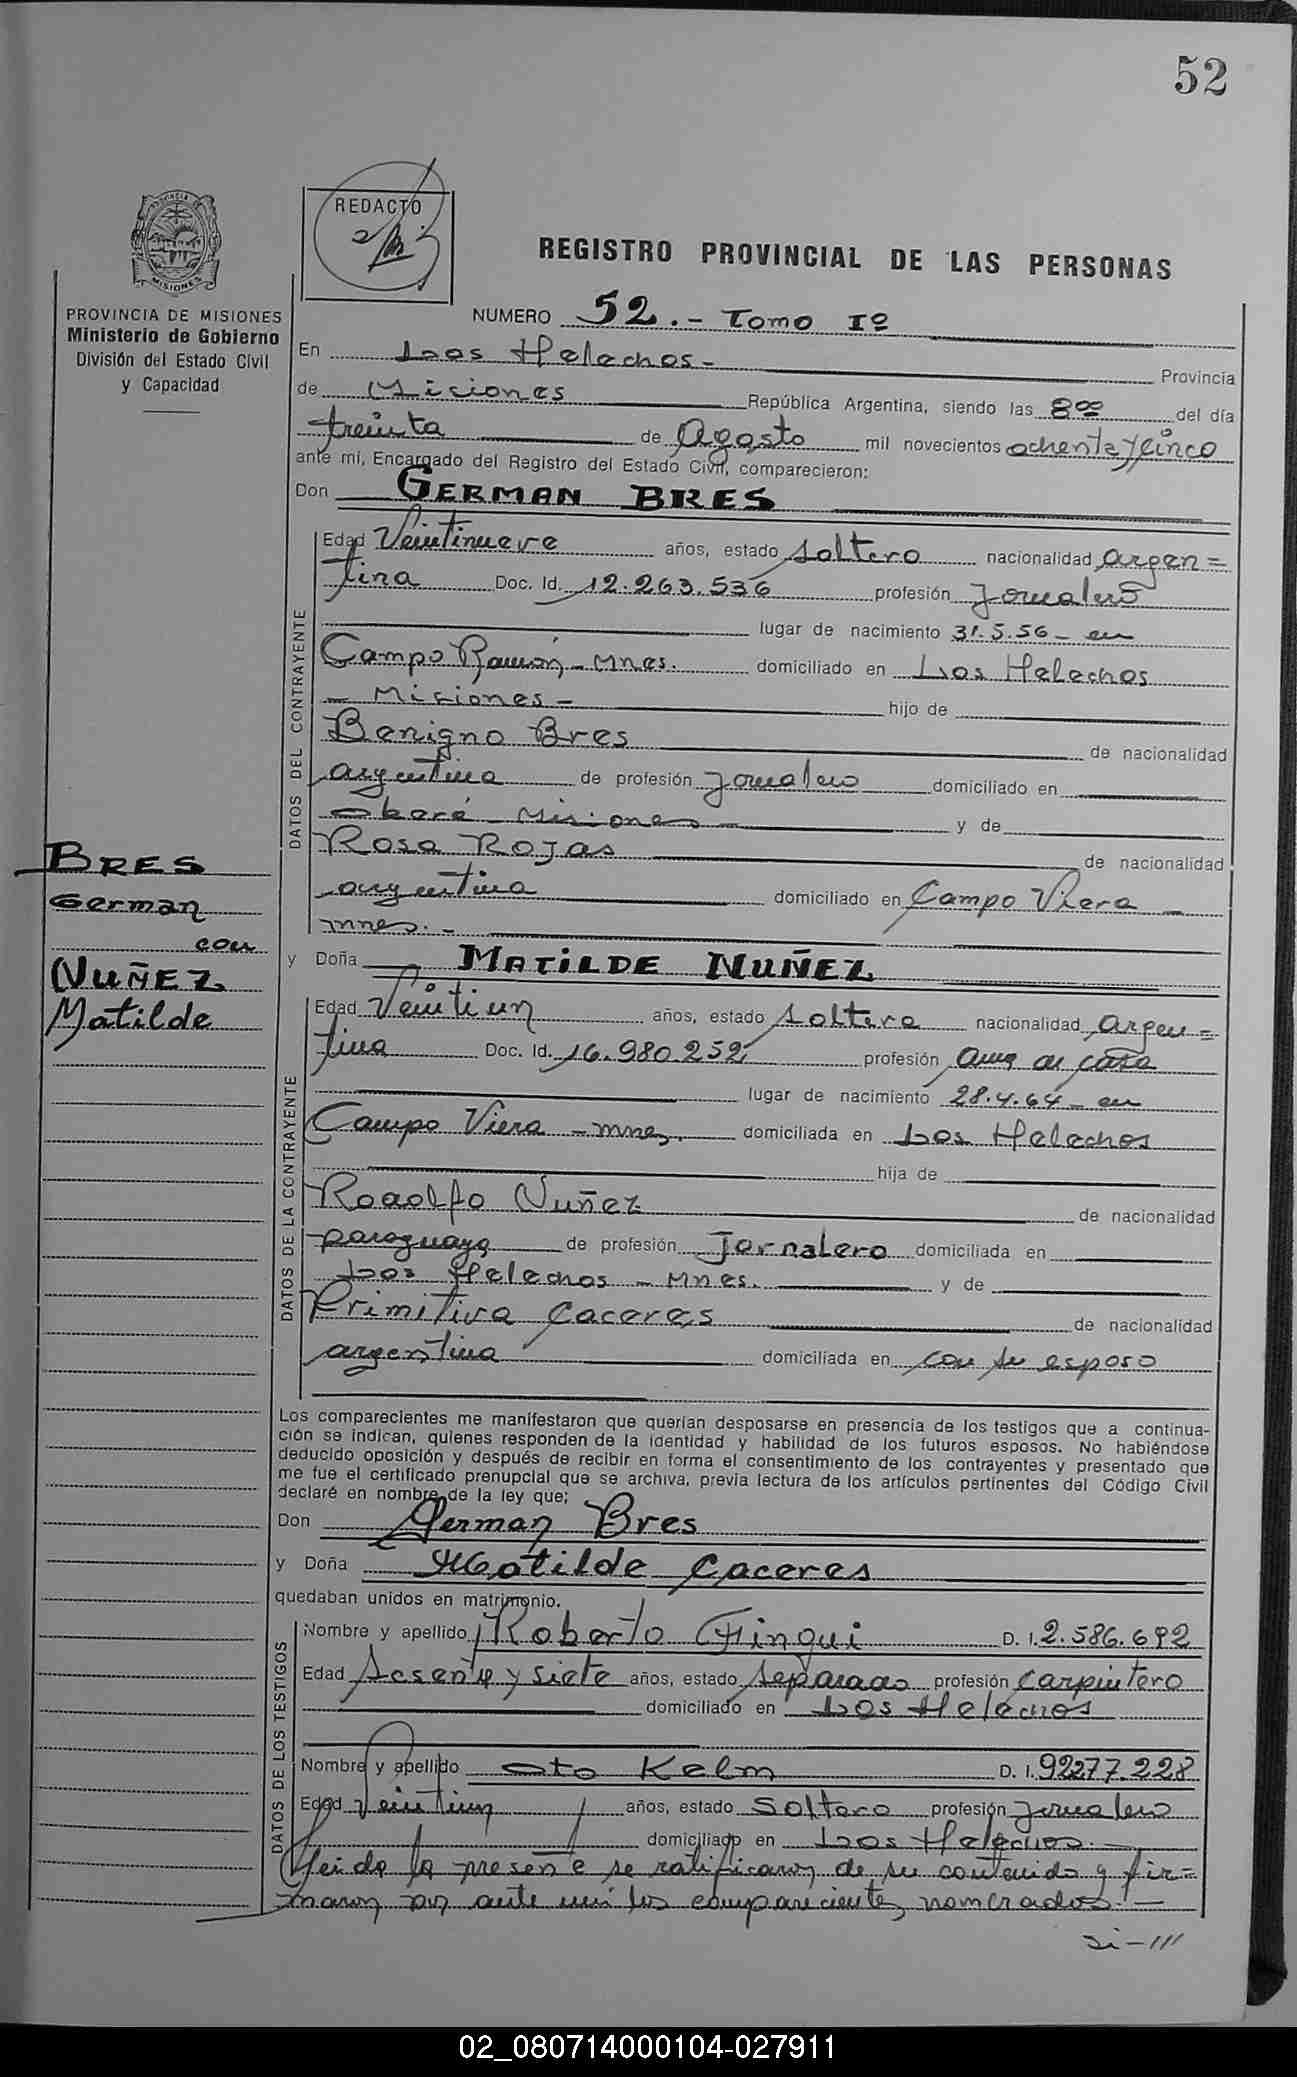 52
REDACTO
REGISTRO PROVINCIAL DE LAS PERSONAS
PROVINCIA DE MISIONES
Ministerio de Gobierno
División del Estado Civil
y Capacidad
NUMERO 52.- Tomo Iº
En Los Helechos- Provincia
de Misiones República Argentina, siendo las 8ºº del día
treinta de Agosto mil novecientos ochenta y cinco
ante mí, Encargado del Registro del Estado Civil, comparecieron:
Don GERMAN BRES
DATOS DEL CONTRAYENTE
Edad Veintinueve años, estado soltero nacionalidad argen=
tina Doc. Id. 12.263.536 profesión Jornalero
lugar de nacimiento 31.5.56- en
Campo Ramón-Mnes. domiciliado en Los Helechos
- Misiones - hijo de
Benigno Bres de nacionalidad
argentina de profesión Jornalero domiciliado en
Oberá Misiones y de
Rosa Rojas de nacionalidad
argentina domiciliado en Campo Viera -
mnes.-
BRES
German
con
NUÑEZ
Matilde
y Doña MATILDE NUÑEZ
DATOS DE LA CONTRAYENTE
Edad Veintiun años, estado soltera nacionalidad argen=
tina Doc. Id. 16.980.252 profesión ama de casa
lugar de nacimiento 28.4.64- en
Campo Viera -mnes. domiciliada en Los Helechos
hija de
Rodolfo Nuñez de nacionalidad
paraguaya de profesión Jornalero domiciliada en
Los Helechos - Mnes. y de
Primitiva Caceres de nacionalidad
argentina domiciliada en con su esposo
Los comparecientes me manifestaron que querían desposarse en presencia de los testigos que a continua-
ción se indican, quienes responden de la identidad y habilidad de los futuros esposos. No habiéndose
deducido oposición y después de recibir en forma el consentimiento de los contrayentes y presentado que
me fue el certificado prenupcial que se archiva, previa lectura de los artículos pertinentes del Código Civil
declaré en nombre de la ley que;
Don German Bres
y Doña Matilde Caceres
quedaban unidos en matrimonio.
DATOS DE LOS TESTIGOS
Nombre y apellido Roberto D. I. 2.586.692
Edad sesenta y siete años, estado separado profesión carpintero
domiciliado en Los Helechos
Nombre y apellido Oto Kelm D. I. 92277.228
Edad Veintiun años, estado Soltero profesión Jornalero
domiciliado en Los Helechos.-
Leida la presente se ratificaron de su contenido y fir=
maron por ante mi los comparecientes nombrados.-
02_080714000104-027911